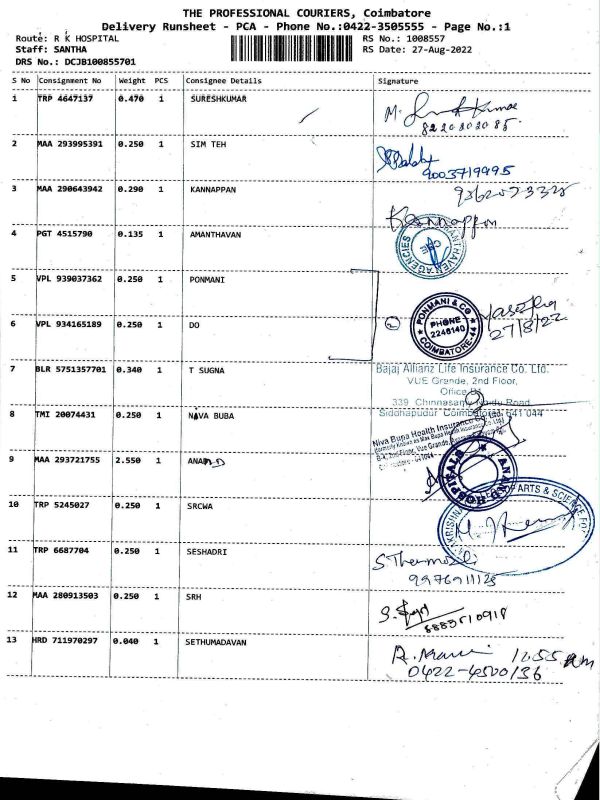 THE PROFESSIONAL COURIERS, Coimbatore
Delivery Runsheet - PCA - Phone No.:0422-3505555 - Page No.:1
Route: R K HOSPITAL
RS No.: 1008557
Staff: SANTHA
RS Date: 27-Aug-2022
DRS No.: DCJB100855701
S No Consignment No Weight PCS Consignee Details Signature
1 TRP 4647137 0.470 1 SURESHKUMAR
8220302085.
2 MAA 293995391 0.250 1 SIM TEH
9003719995
3 MAA 290643942 0.290 1 KANNAPPAN
Kannappan
4 PGT 4515790 0.135 1 AMANTHAVAN
AGENCIES
CBE
5 VPL 939037362 0.250 1 PONMANI
PONMANI & CO
PHONE
2246140
COIMBATORE-44
27/8/22
6 VPL 934165189 0.250 1 DO
7 BLR 5751357701 0.340 1 T SUGNA
Bajaj Allianz Life Insurance Co. Ltd.
VUE Grande, 2nd Floor,
Office B1
339, Chinnasamy Naidu Road
Sidhapudur Coimbatore 641 044
8 TMI 20074431 0.250 1 NIVA BUBA
Niva Bupa Health Insurance Co. Ltd
(formerly Known as Max Bupa Health Insurance Co. Ltd)
9 MAA 293721755 2.550 1 ANAND
ANAND HOSPITALS
10 TRP 5245027 0.250 1 SRCWA
OF ARTS & SCIENCE FO
11 TRP 6687704 0.250 1 SESHADRI
9976911123
12 MAA 280913503 0.250 1 SRH
8883510918
13 HRD 711970297 0.040 1 SETHUMADAVAN
12.55 pm
0422-4500136